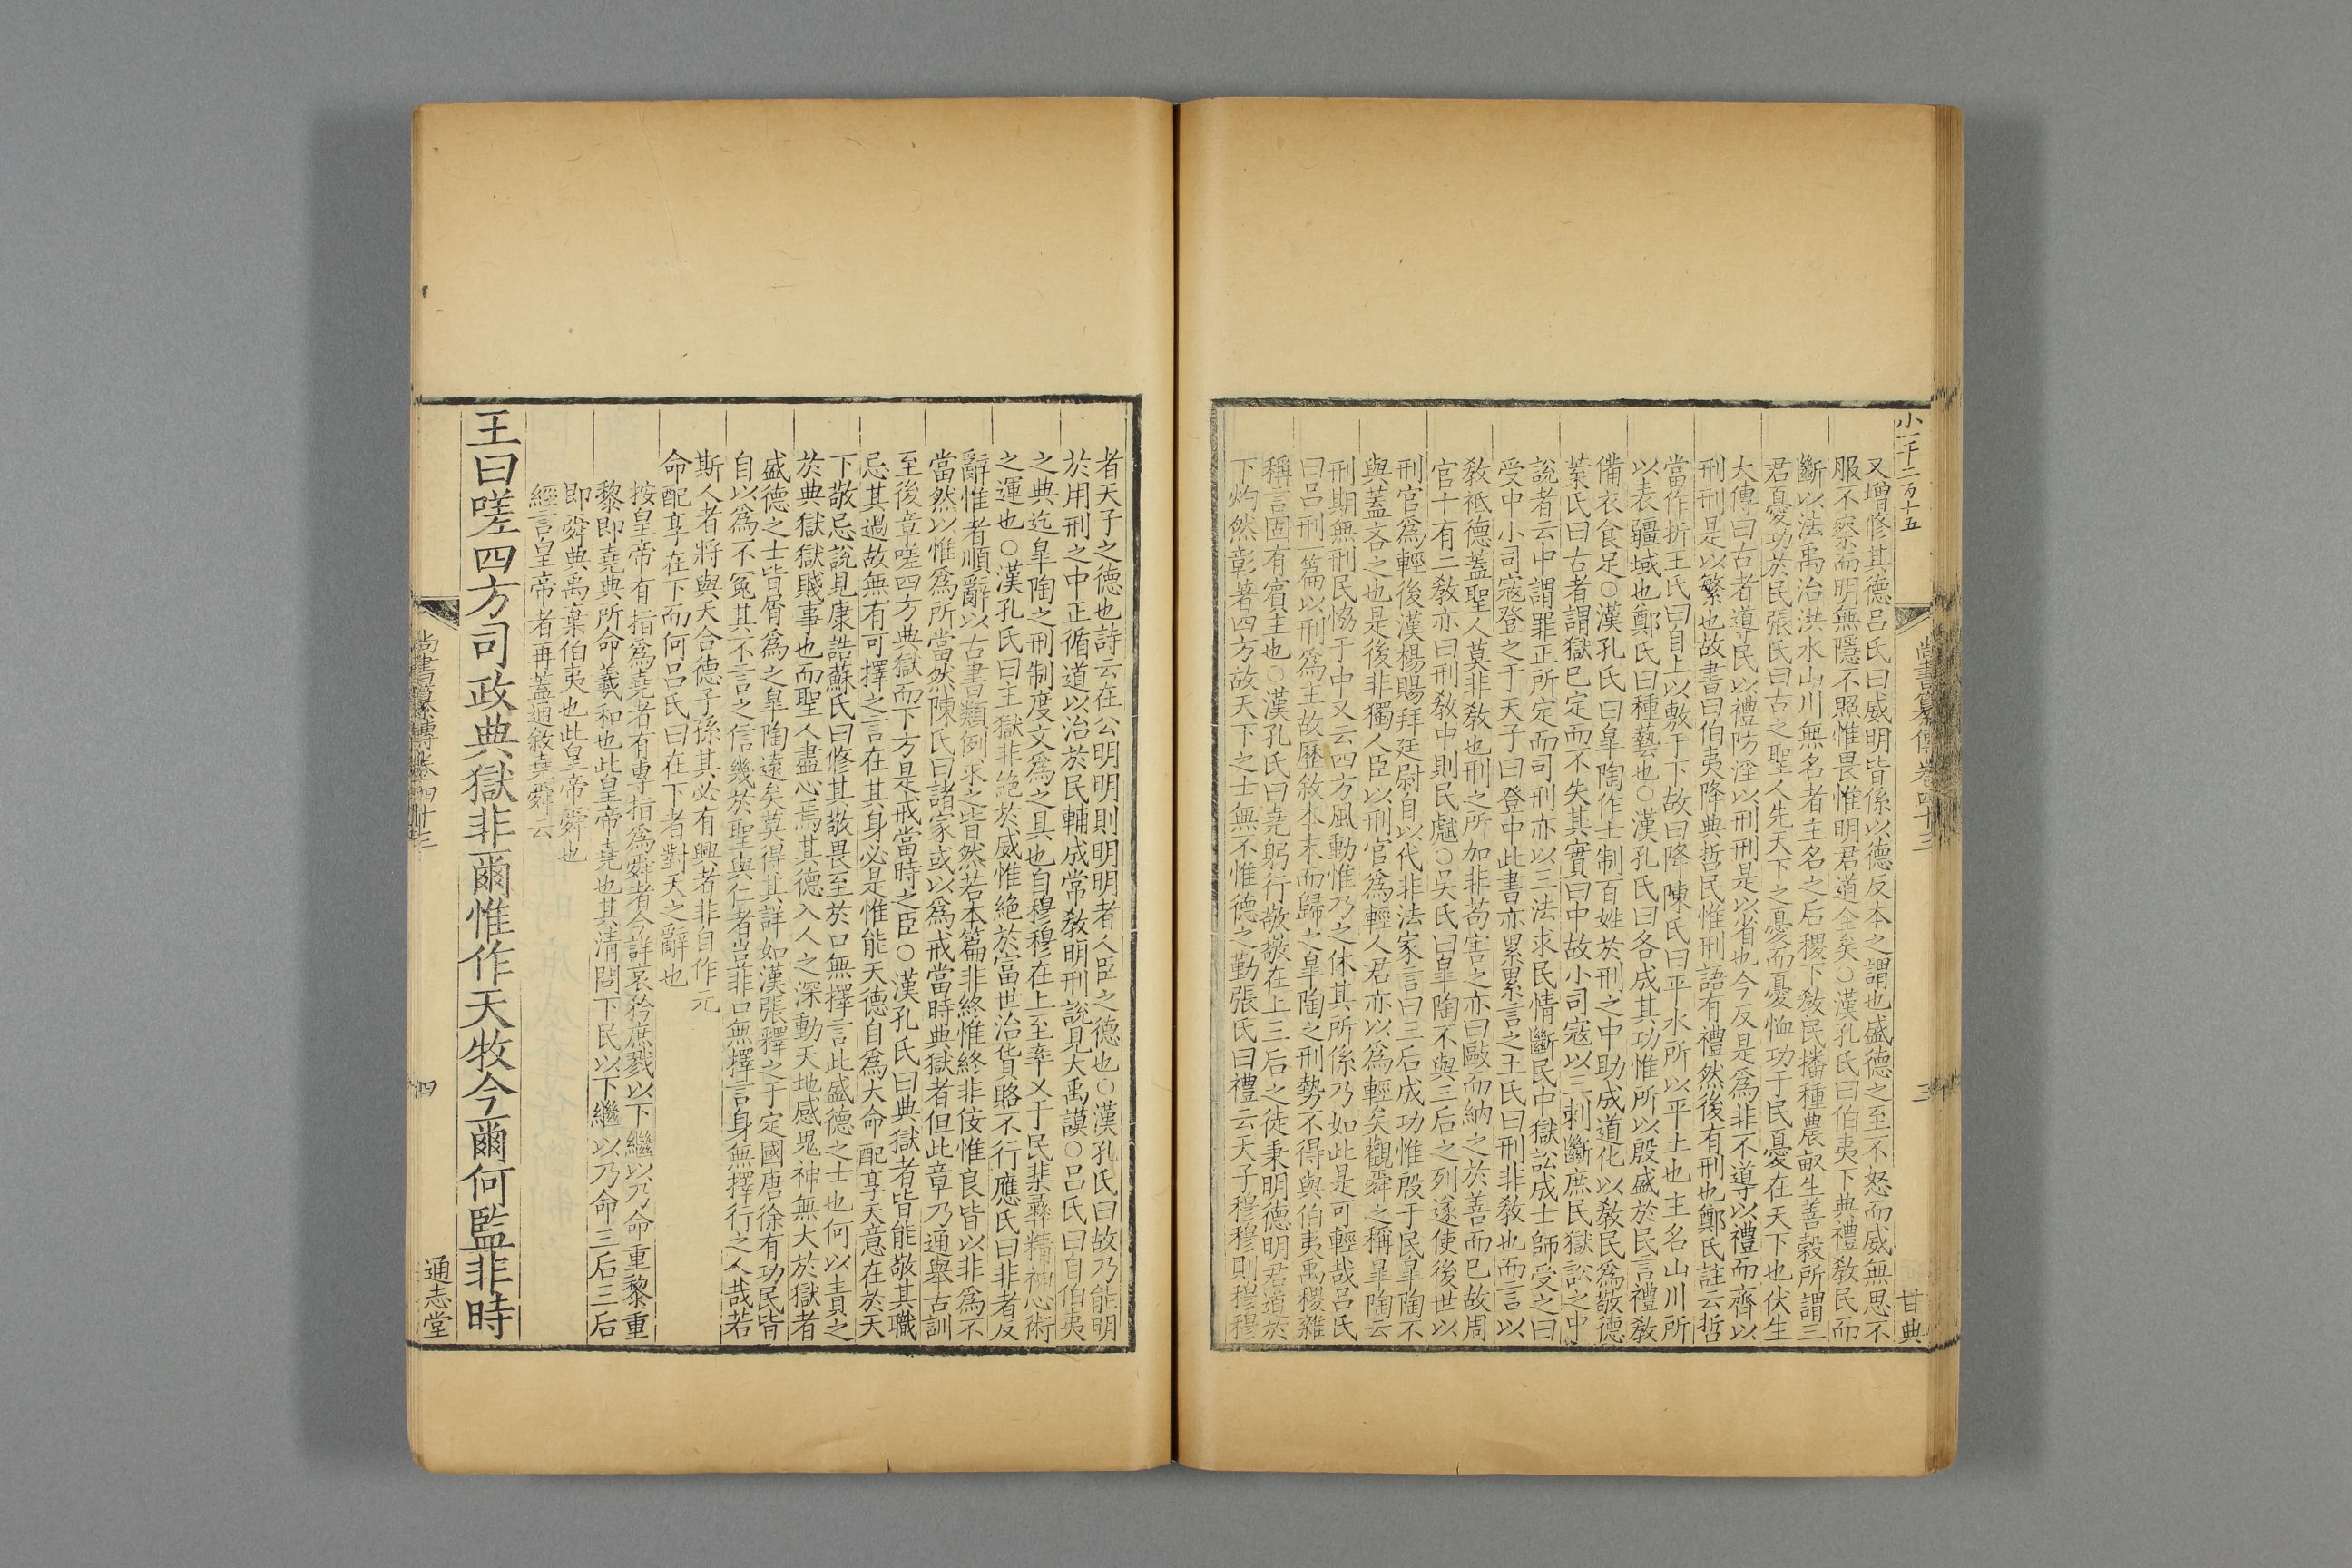 小一千二百十五
尚書纂傳卷四十三
三
甘典
又增修其德呂氏曰威明皆係以德反本之謂也盛德之至不怒而威無思不
服不察而明無隱不照惟畏惟明君道全矣○漢孔氏曰伯夷下典禮教民而
斷以法禹治洪水山川無名者主名之后稷下教民播種農畝生善穀所謂三
君憂功於民張氏曰古之聖人先天下之憂而憂恤功于民憂在天下也伏生
大傳曰古者導民以禮防淫以刑刑是以省也今反是爲非不導以禮而齊以
刑刑是以繁也故書曰伯夷降典哲民惟刑語有禮然後有刑也鄭氏註云哲
當作折王氏曰自上以敷于下故曰降陳氏曰平水所以平土也主名山川所
以表疆域也鄭氏曰種藝也○漢孔氏曰各成其功惟所以殷盛於民言禮教
備衣食足○漢孔氏曰皐陶作士制百姓於刑之中助成道化以教民爲敬德
葉氏曰古者謂獄已定而不失其實曰中故小司寇以三刺斷庶民獄訟之中
說者云中謂罪正所定而司刑亦以三法求民情斷民中獄訟成士師受之曰
受中小司寇登之于天子曰登中此書亦累累言之王氏曰刑非教也而言以
教祗德蓋聖人莫非教也刑之所加非苟害之亦曰敺而納之於善而已故周
官十有二教亦曰刑教中則民虣○吳氏曰皐陶不與三后之列遂使後世以
刑官爲輕後漢楊賜拜廷尉自以代非法家言曰三后成功惟殷于民皐陶不
與蓋吝之也是後非獨人臣以刑官爲輕人君亦以爲輕矣觀舜之稱皐陶云
刑期無刑民恊于中又云四方風動惟乃之休其所係乃如此是可輕哉呂氏
曰呂刑一篇以刑爲主故歷敘本末而歸之皐陶之刑勢不得與伯夷禹稷雜
稱言固有賓主也○漢孔氏曰堯躬行敬敬在上三后之徒秉明德明君道於
下灼然彰著四方故天下之士無不惟德之勤張氏曰禮云天子穆穆則穆穆
者天子之德也詩云在公明明則明明者人臣之德也○漢孔氏曰故乃能明
於用刑之中正循道以治於民輔成常教明刑說見大禹謨○呂氏曰自伯夷
之典迄皐陶之刑制度文爲之具也自穆穆在上至率乂于民棐彝精神心術
之運也○漢孔氏曰王獄非絕於威惟絕於富世治貨賂不行應氏曰非者反
辭惟者順辭以古書類例求之皆然若本篇非終惟終非佞惟良皆以非爲不
當然以惟爲所當然陳氏曰諸家或以爲戒當時典獄者但此章乃通舉古訓
至後章嗟四方典獄而下方是戒當時之臣○漢孔氏曰典獄者皆能敬其職
忌其過故無有可擇之言在其身必是惟能天德自爲大命配享天意在於天
下敬忌說見康誥蘇氏曰修其敬畏至於口無擇言此盛德之士也何以責之
於典獄獄賤事也而聖人盡心焉其德入人之深動天地感鬼神無大於獄者
盛德之士皆屑爲之皐陶遠矣莫得其詳如漢張釋之于定國唐徐有功民皆
自以爲不冤其不言之信幾於聖與仁者豈非口無擇言身無擇行之人哉若
斯人者將與天合德子孫其必有興者非自作元
命配享在下而何呂氏曰在下者對天之辭也
按皇帝有指爲堯者有專指爲舜者今詳哀矜庶戮以下繼以乃命重黎重
黎即堯典所命羲和也此皇帝堯也其清問下民以下繼以乃命三后三后
即舜典禹棄伯夷也此皇帝舜也
經言皇帝者再蓋通敘堯舜云
王曰嗟四方司政典獄非爾惟作天牧今爾何監非時
尚書纂傳卷四十三
四
通志堂